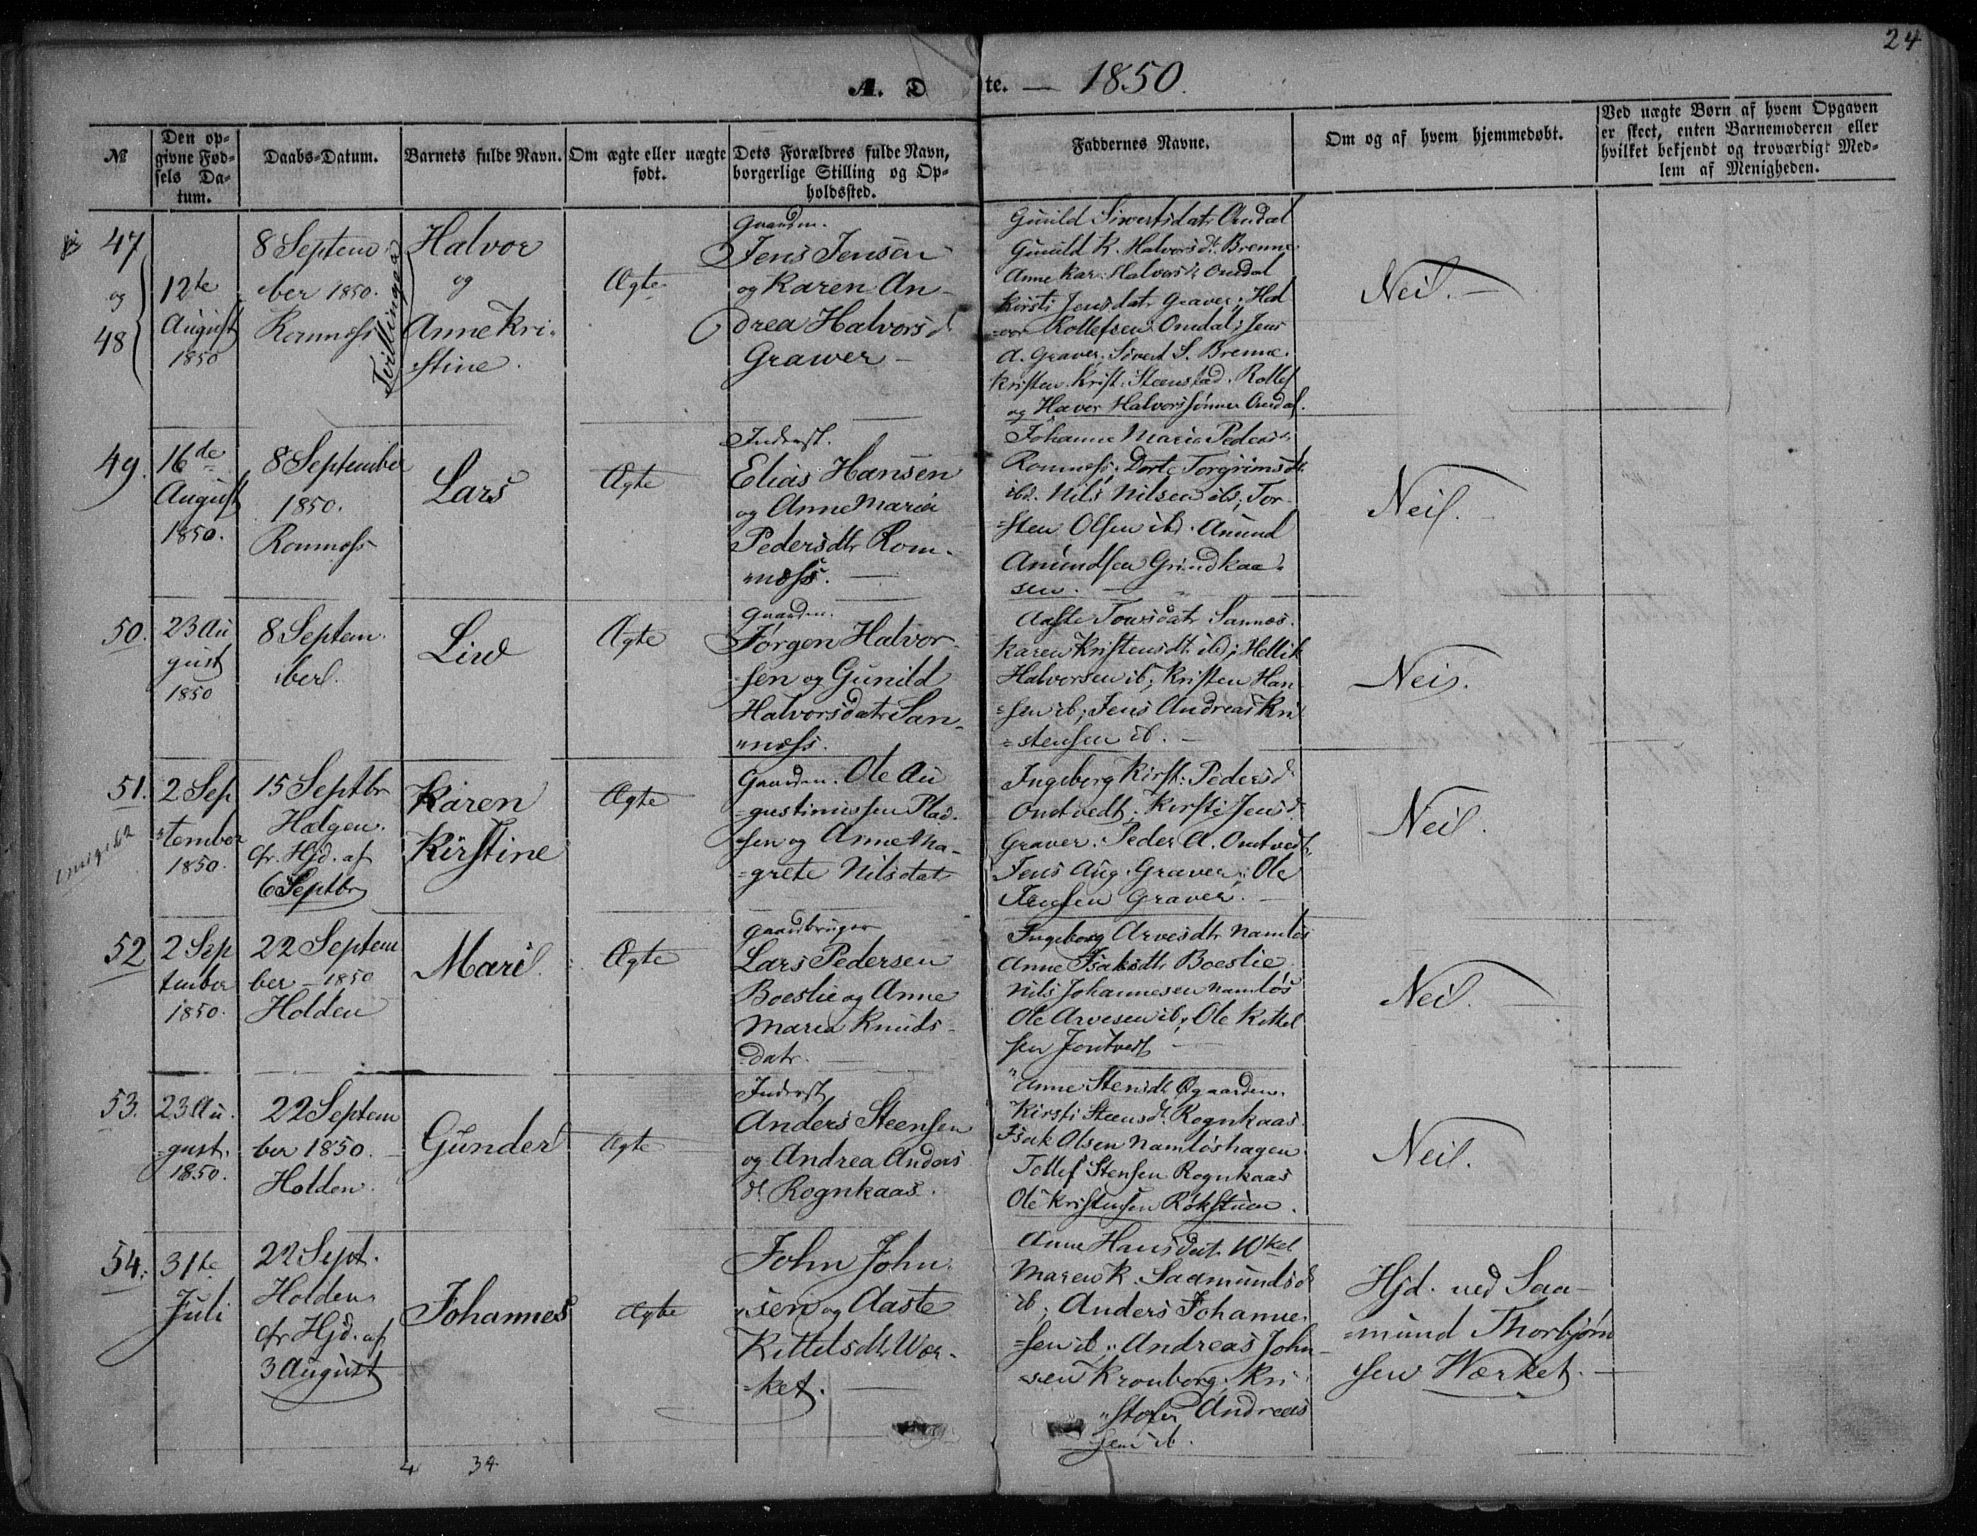 24
A. D te. — 1850.
№
Den op-
givne Fød-
sels Da-
tum.
Daabs-Datum.
Barnets fulde Navn.
Om ægte eller uægte
født.
Dets Forældres fulde Navn,
borgerlige Stilling og Op-
holdssted.
Faddernes Navne.
Om og af hvem hjemmedøbt.
Ved uægte Børn af hvem Opgaven
er skeet, enten Barnemoderen eller
hvilket bekjendt og troværdigt Med-
lem af Menigheden.
47
og
48
12te
August
1850
8 Septem
ber 1850.
Romnæss
Tvillinger
Halvor
og
Anne Kri-
stine.
Ægte
Gaardm.
Jens Jensen
og Karen An-
drea Halvorsd.
Grawer —
Gunild Sivertsdatr Omdal
Gunild K. Halvorsdt. Brenne
Anne Kar. Halvorsd. Omdal
Kirsti Jensdatr Graver; Hal
=vor Rollefsen Omdal; Jens
A. Graver; Sivert S. Brenne.
Kristen Krist. Steenstad. Rollef
og Haver Halvorssønner Omdal.
Neil. —
49.
16de
August
1850.
8 September
1850.
Romnæss
Lars
Ægte
Inderst.
Elias Hansen
og Anne Maria
Pedersdtr Rom-
=næss. —
Johanne Maria Pedersd.
Romnæss. Dorte Torgrimsdt.
ibd. Nils Nilsen ib; Tor-
=sten Olsen ibd. Amund
Amundsen Grindkaa-
sen. —
Neil.
50.
23 Au
gust
1850
8 Septem
ber.
Liv
Ægte
Gaardm.
Jørgen Halvor-
sen og Gunild
Halvorsdatr San-
=næss.
Aaste Toresdatr Sannæs.
Karen Kristensdt. ibd; Hellik
Halvorsen ib; Kristen Han-
=sen ib; Jens Andreas Kri
=stensen ib. —
Neil.
51.
2 Sep
=tember
1850.
15 Septbr
Hælgen.
cfr. Hjd. af
6 Septbr
Karen
Kirstine
Ægte
Gaardm. Ole Au
=gustinussen Plad-
sen og Anne Ma-
=grete Nilsdat
Ingeborg Kirst. Pedersd.
Omtvedt; Kirsti Jensd.
Graver. Peder A. Omtvedt,
Jens Aug. Graver; Ole
Jensen Graver. —
Neil.
52
2 Sep
tember
1850.
22 Septem
ber — 1850
Holden
Mari
Ægte
Gaardbruger
Lars Pedersen
Boeslie og Anne
Maria Knuds-
datr. —
Ingeborg Arvesdtr Namløs
Anne Isaksdtr Boeslie
Nils Johannesen Namløs
Ole Arvesen ib; Ole Kittel
sen Jontvedt —
Neil.
53.
23 Au.
=gust.
1850.
22 Septem
ber 1850.
Holden.
Gunder
Ægte
Inderst
Anders Steensen
og Andrea Anders
dt. Rognkaas.
Anne Stensdt. Øgaarden.
Kirsti Steensdt. Rognkaas.
Isak Olsen Namløshagen.
Tollef Stensen Rognkaas
Ole Kristensen Røkstuen.
Neil.
54.
31te
Juli
22 Sept.
Holden.
cfr Hjd. af
3 August
Johannes
Ægte
John John-
=sen og Aaste
Kittelsdtr Vær-
=ket. —
Anne Hansdat.
Maren K. Saamundsd.
ib; Anders Johanne-
=sen ib; Andreas John-
=sen Kronborg; Kri
=stofer Andreas
sen ib.
Hjd. ved Saa-
=mund Thorbjørn
sen Værket. —
4 34